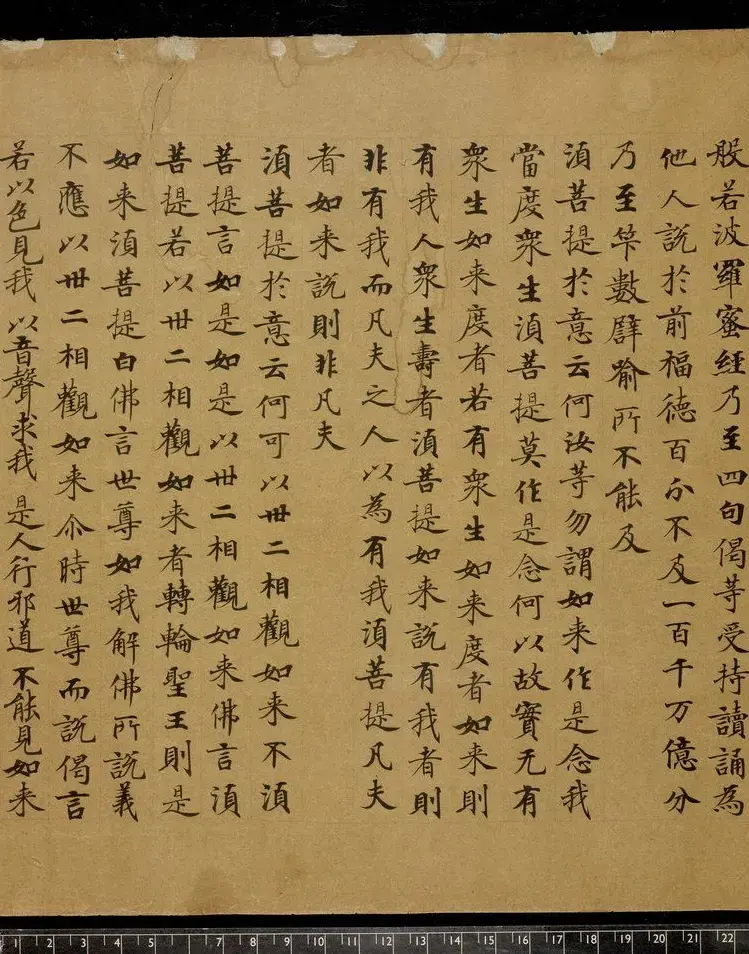 般若波羅蜜經乃至四句偈等受持讀誦為
他人說於前福德百分不及一百千万億分
乃至笇數譬喻所不能及
湏菩提於意云何汝等勿謂如来作是念我
當度衆生湏菩提莫作是念何以故實无有
衆生如来度者若有衆生如来度者如来則
有我人衆生壽者湏菩提如来說有我者則
非有我而凡夫之人以為有我湏菩提凡夫
者如来說則非凡夫
湏菩提於意云何可以卅二相觀如来不湏
菩提言如是如是以卅二相觀如来佛言湏
菩提若以卅二相觀如来者轉輪聖王則是
如来湏菩提白佛言世尊如我解佛所說義
不應以卅二相觀如来尒時世尊而說偈言
若以色見我 以音聲求我 是人行邪道 不能見如来
1 2 3 4 5 6 7 8 9 10 11 12 13 14 15 16 17 18 19 20 21 22